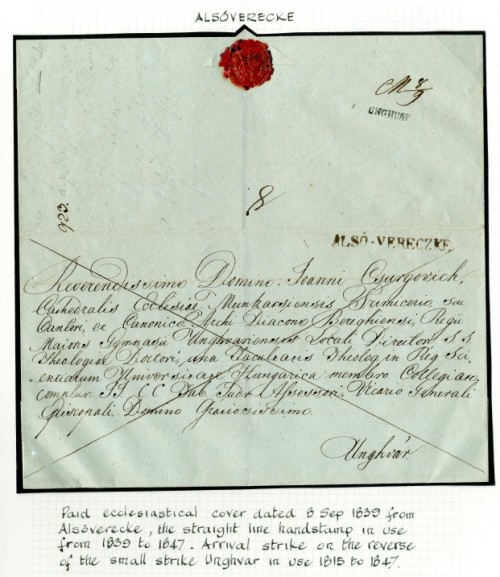 ALSÓVERECKE
M 8/9
UNGHVAR
8
923.
ALSÓ-VERECZKE.
Reverendissimo Domino Ioanni Csurgovich,
Cathedralis Ecclesiae Munkacsiensis Primicerio, seu
Cantori, et Canonico, Archi Diacono Bereghiensi, Regii
Maioris Gymnasii Unghvariensis Locali Directori SS
Theologiae Doctori, una Facultatis Theolog in Reg Sci
entiarum Universitate Hungarica membro Collegiato,
complur II. CC Tab. Judr Assessori, Vicario Generali
Episcopali Domino Gratiosissimo.
Unghvár.
Paid ecclesiastical cover dated 8 Sep 1839 from
Alsóverecke, the straight line handstamp in use
from 1839 to 1847. Arrival strike on the reverse
of the small strike Unghvar in use 1815 to 1847.